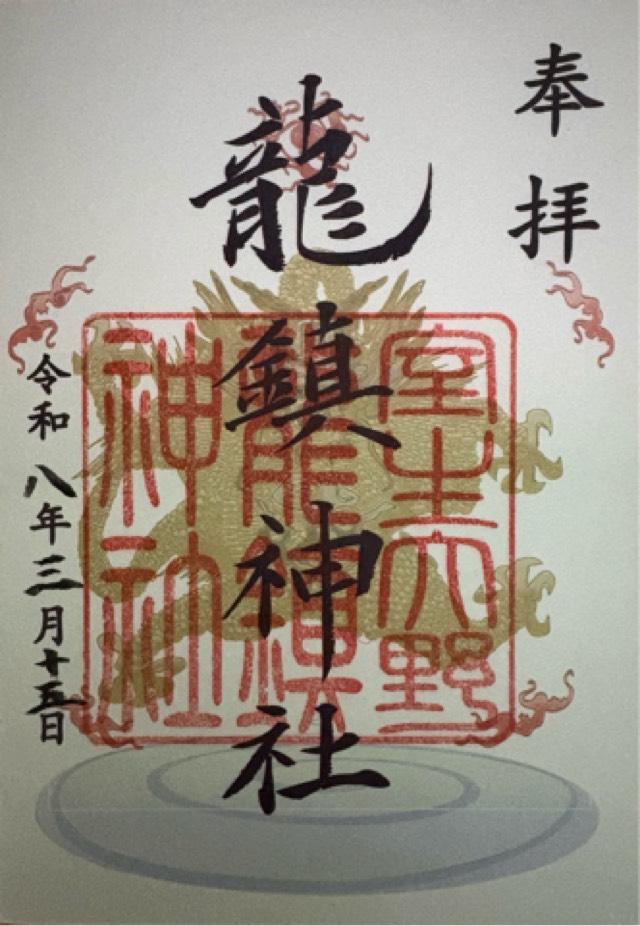 奉拝
龍鎮神社
室生大野
龍鎮
神社
令和八年三月十五日